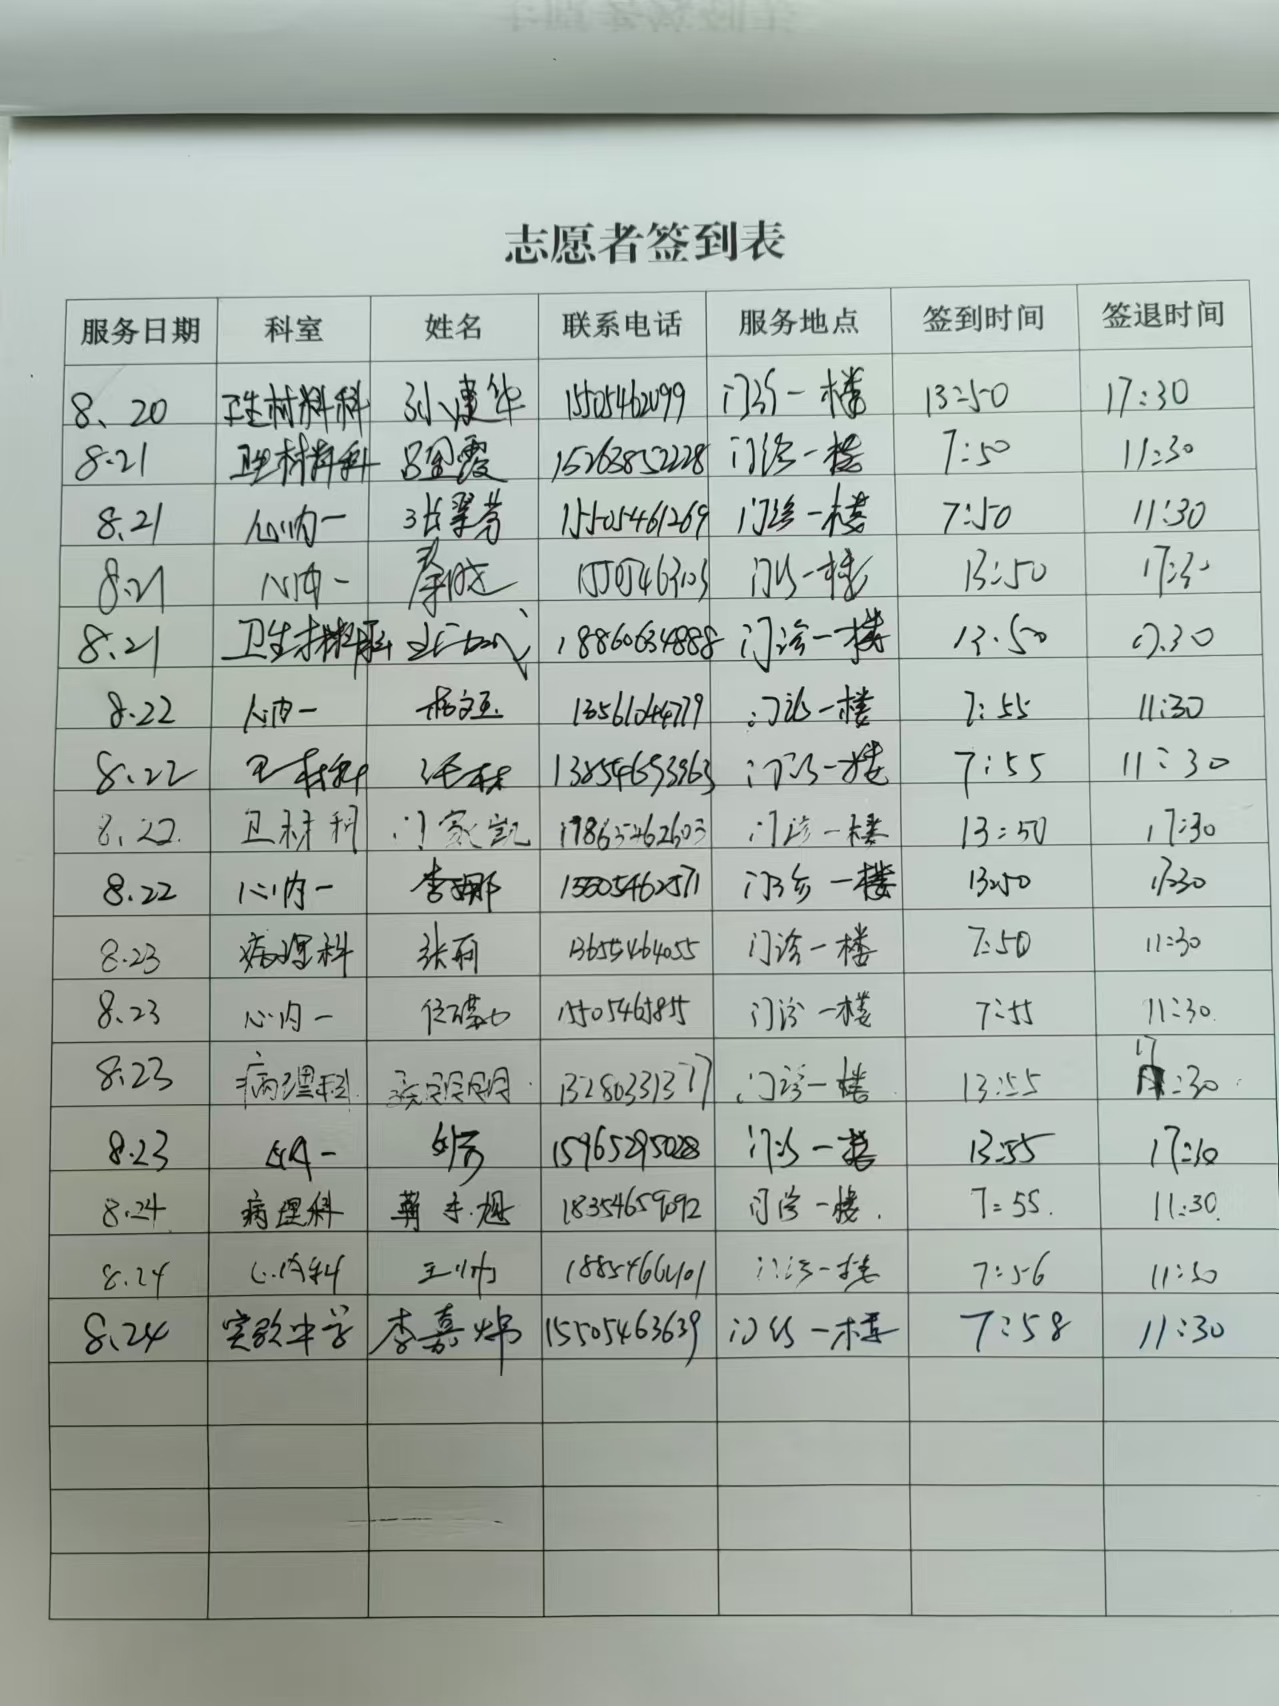 志愿者签到表
服务日期 科室 姓名 联系电话 服务地点 签到时间 签退时间
8.20 卫生材料科 孙建华 15505462099 门诊一楼 13:50 17:30
8.21 卫生材料科 吕金霞 15263852228 门诊一楼 7:50 11:30
8.21 心内一 张翠芳 15505461269 门诊一楼 7:50 11:30
8.21 心内一 秦晓 15505463103 门诊一楼 13:50 17:30
8.21 卫生材料科 18860634888 门诊一楼 13:50 17:30
8.22 心内一 杨文玉 门诊一楼 7:55 11:30
8.22 卫材科 13854653963 门诊一楼 7:55 11:30
8.22 卫材科 门家凯 17865462603 门诊一楼 13:50 17:30
8.22 心内一 李娜 15505462571 门诊一楼 13:50 17:30
8.23 病理科 张丽 13655464055 门诊一楼 7:50 11:30
8.23 心内一 门诊一楼 7:55 11:30
8.23 病理科 13280331377 门诊一楼 13:55 17:30
8.23 心内一 15965295028 门诊一楼 13:55 17:30
8.24 病理科 18354659092 门诊一楼 7:55 11:30
8.24 心内科 王帅 门诊一楼 7:56 11:30
8.24 实验中学 李嘉炜 15505463639 门诊一楼 7:58 11:30